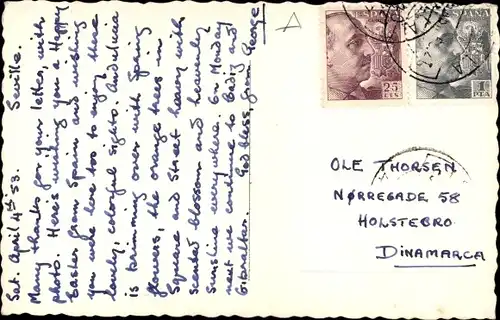 Sat. April 4th 53. Seville.
Many thanks for your letter, with
photo. Here's wishing you a Happy
Easter from Spain and wishing
you were here too to enjoy these
lovely, colorful sights. Andalucia
is brimming over with Spring
flowers, the orange trees in
Square and Street heavy with
scented blossom and heavenly
sunshine everywhere. On Monday
next we continue to Cadiz and
Gibraltar. God bless, from George
ESPAÑA
25
CTS
ESPAÑA
1
PTA
OLE THORSEN
NØRREGADE 58
HOLSTEBRO
DINAMARCA